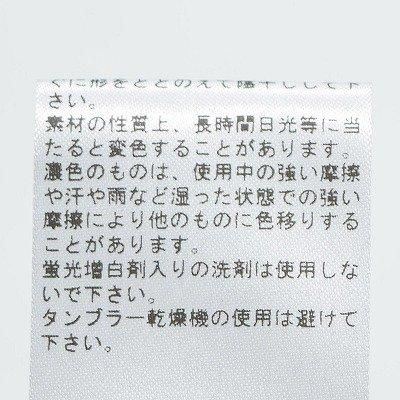 ぐに形をととのえて陰干しして下
さい。
素材の性質上、長時間日光等に当
たると変色することがあります。
濃色のものは、使用中の強い摩擦
や汗や雨など湿った状態での強い
摩擦により他のものに色移りする
ことがあります。
蛍光増白剤入りの洗剤は使用しな
いで下さい。
タンブラー乾燥機の使用は避けて
下さい。